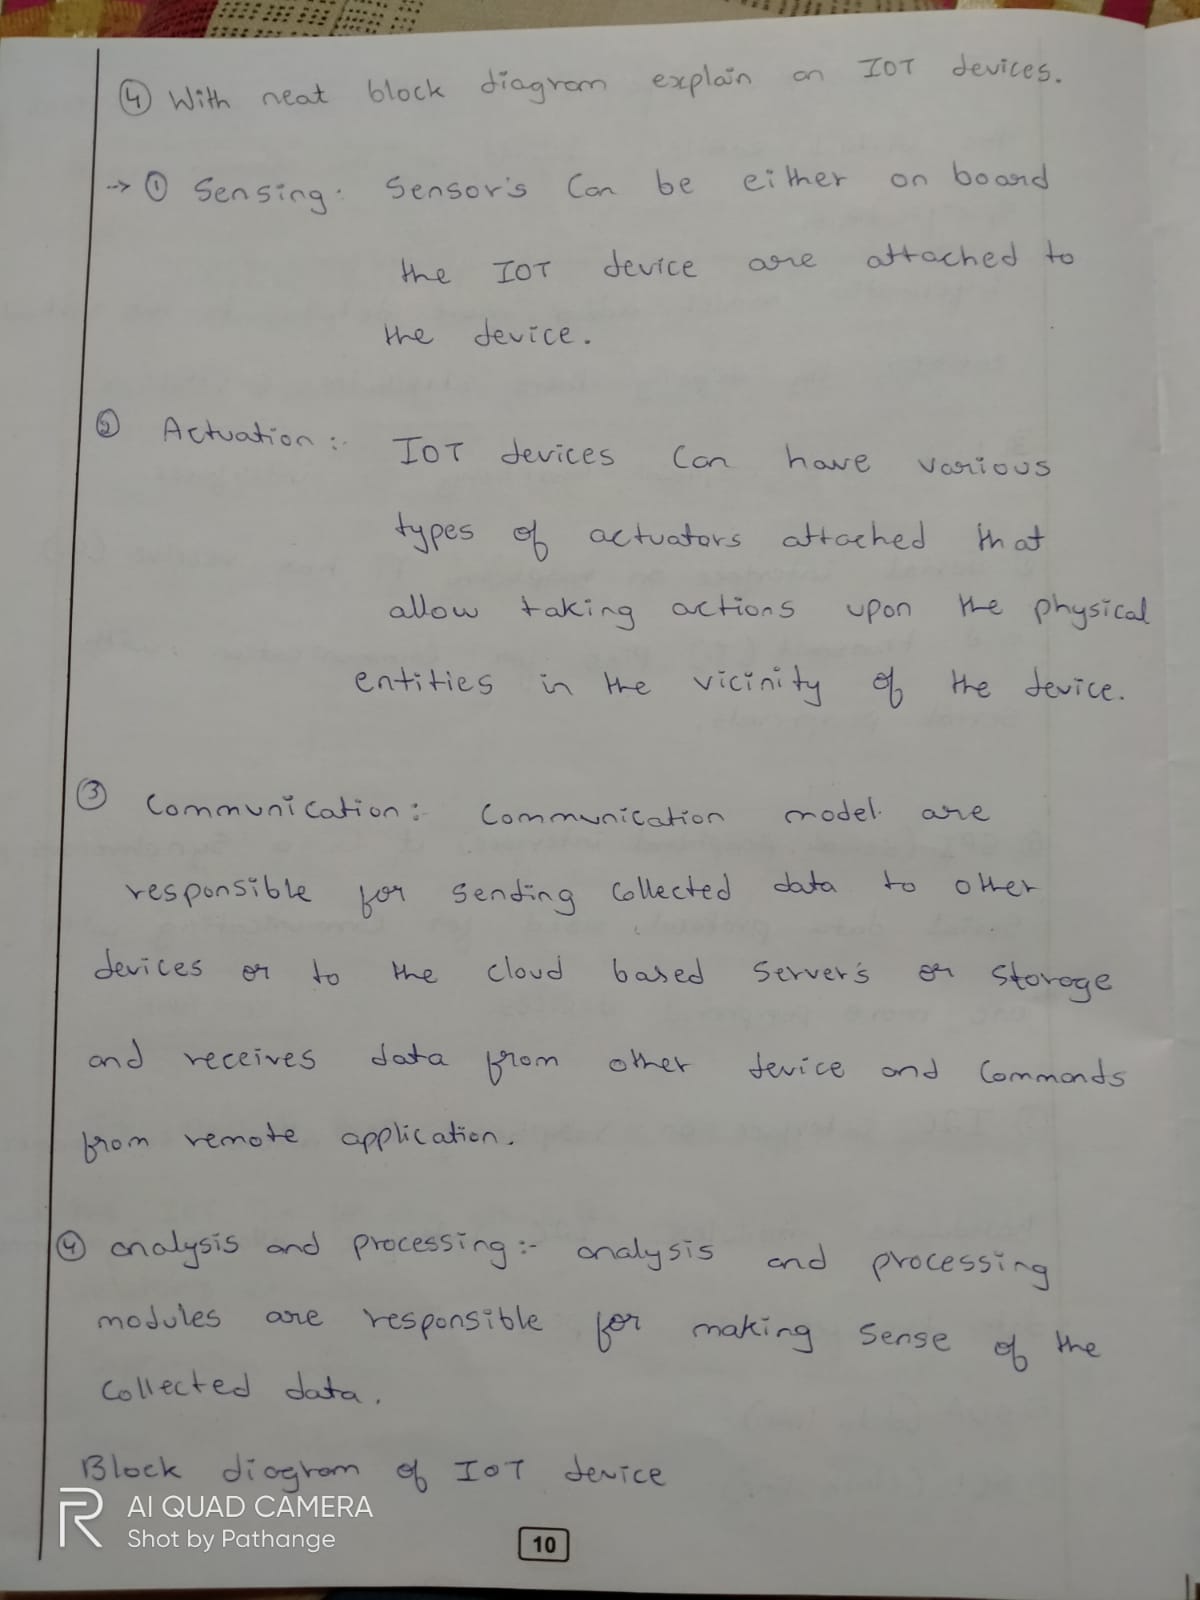 ④ With neat block diagram explain an IOT devices.
-> ① Sensing: Sensor's Can be either on board
the IOT device are attached to
the device.
② Actuation :- IOT devices Can have various
types of actuators attached that
allow taking actions upon the physical
entities in the vicinity of the device.
③ Communication:- Communication model are
responsible for sending collected data to other
devices or to the cloud based server's or storage
and receives data from other device and Commands
from remote application.
④ analysis and processing :- analysis and processing
modules are responsible for making sense of the
collected data.
Block diagram of IOT device
R AI QUAD CAMERA
Shot by Pathange
10